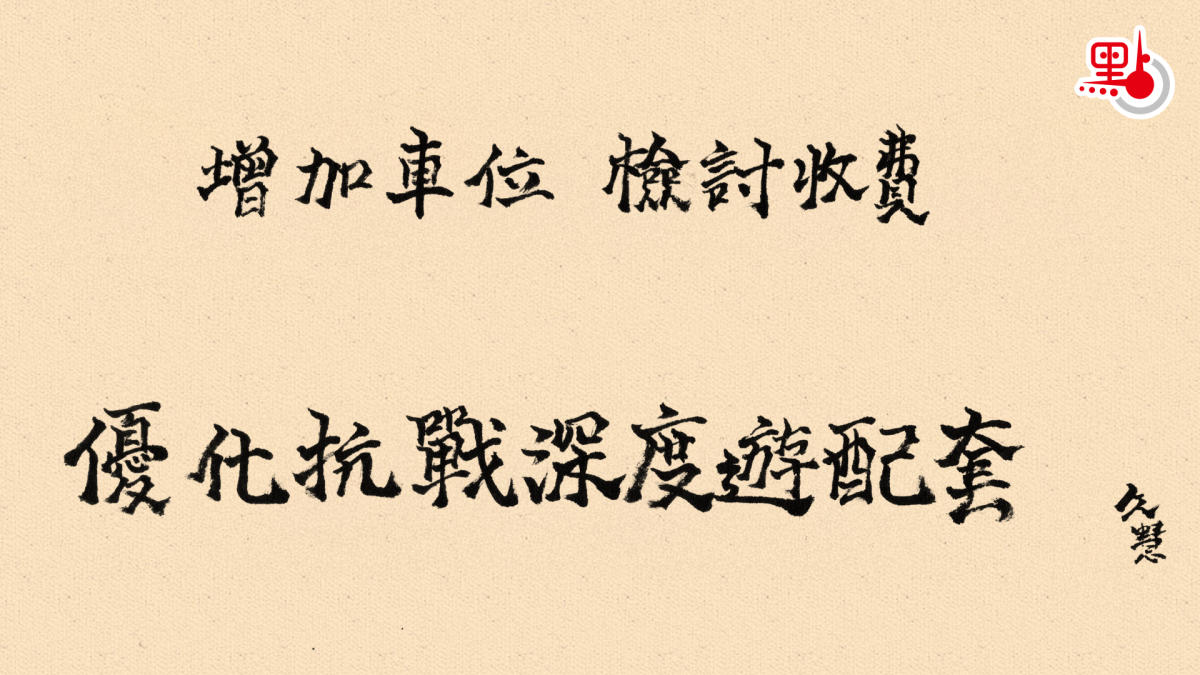 點
增加車位 檢討收費
優化抗戰深度遊配套
久慧